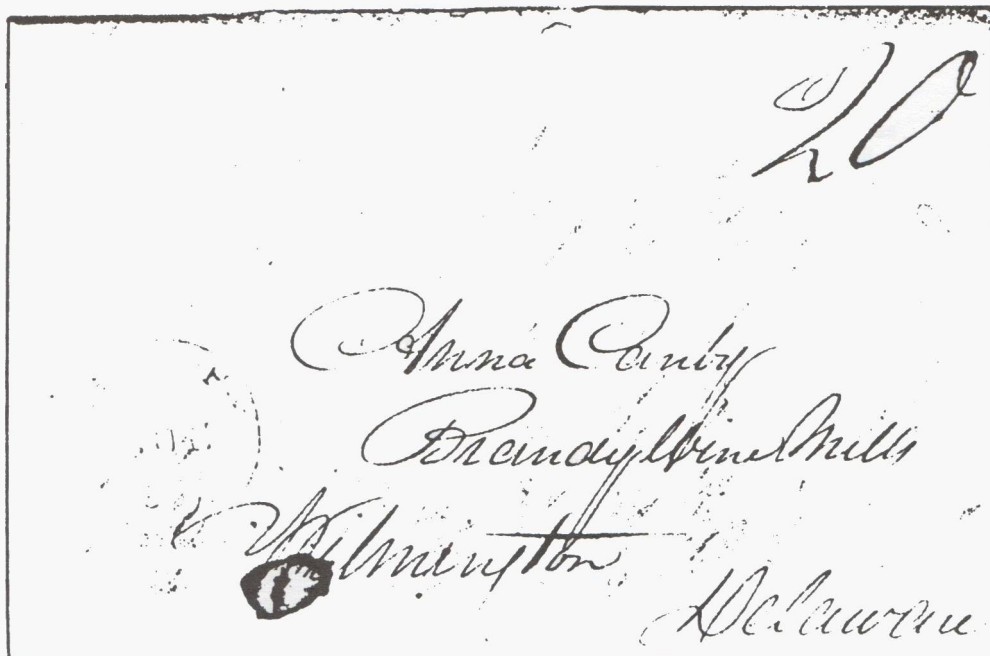 20
Anna Canby
Brandywine Mills
Wilmington
Delaware